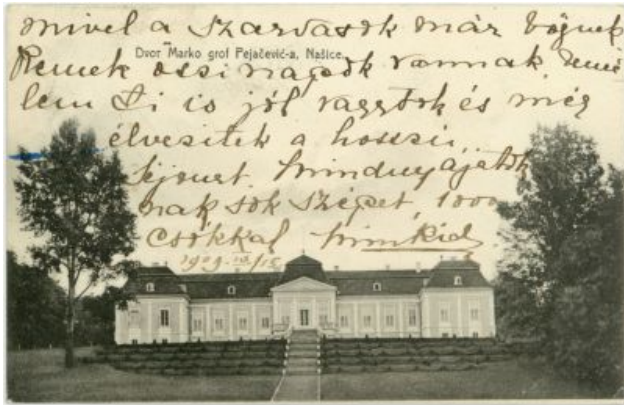 mivel a szarvasok már bőgnek
Dvor Marko grof Pejačević-a, Našice.
Remek őszi napok vannak, remé
lem Ti is jól vagytok és még
élvezitek a hosszú
Mindnyájatok
nak sok szépet, 1000
csókkal
1909.